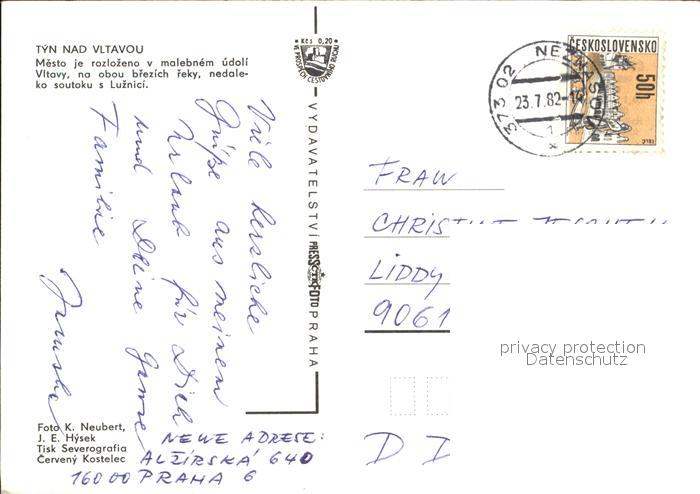 TÝN NAD VLTAVOU
Město je rozloženo v malebném údolí
Vltavy, na obou březích řeky, nedale-
ko soutoku s Lužnicí.
Kčs 0,20
VE PROSPĚCH CESTOVNÍHO RUCHU
VYDAVATELSTVÍ PRESSFOTO PRAHA
373 02 NEZNAŠOV
23.7.82-16
1
ČESKOSLOVENSKO
50h
Viele herzliche
Grüße aus meinem
Urlaub für Dich
und Deine Ganze
Familie
FRAW
CHRIS
LIDDY
9061
D D
privacy protection
Datenschutz
Foto K. Neubert,
J. E. Hýsek
Tisk Severografia
Červený Kostelec
NEUE ADRESE:
ALŽÍRSKÁ 640
16000 PRAHA 6